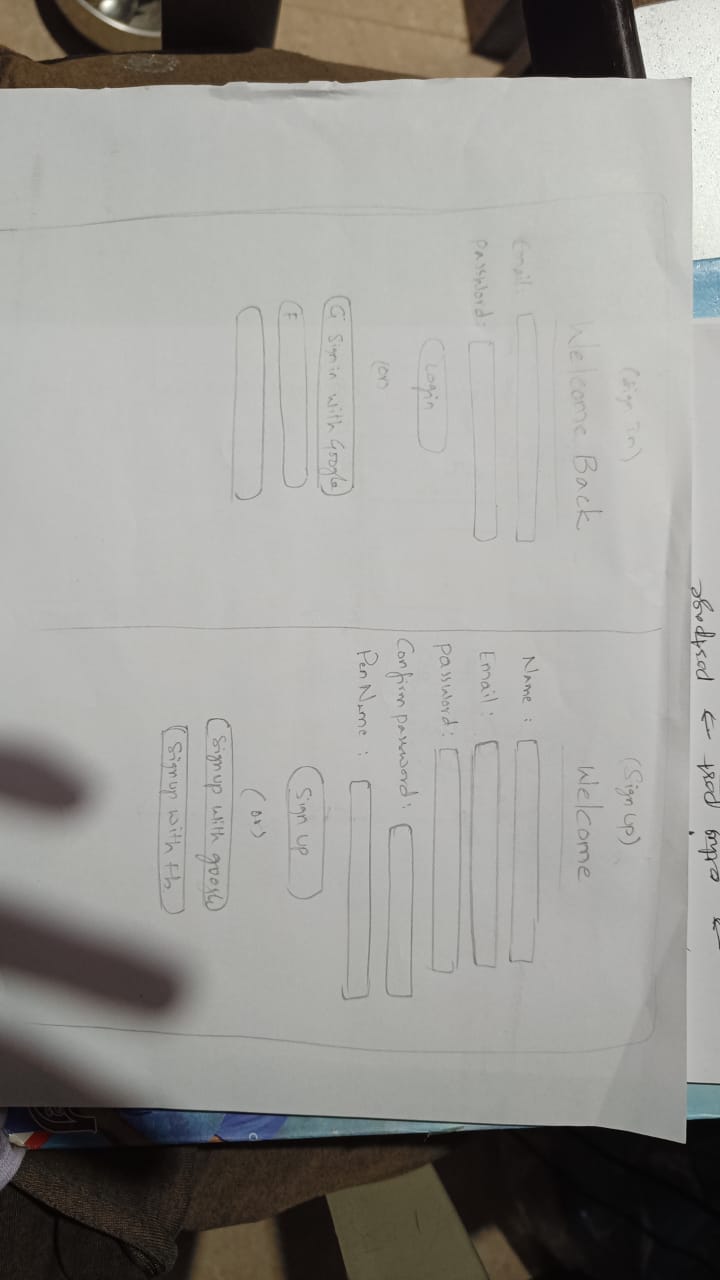 (Sign In)
Welcome Back
Email:
Password:
Login
(or)
G Sign in with Google
F
(Sign up)
Welcome
Name :
Email :
password :
Confirm password :
Pen Name :
Sign up
(or)
Sign up with google
Sign up with fb
edit post → postpage